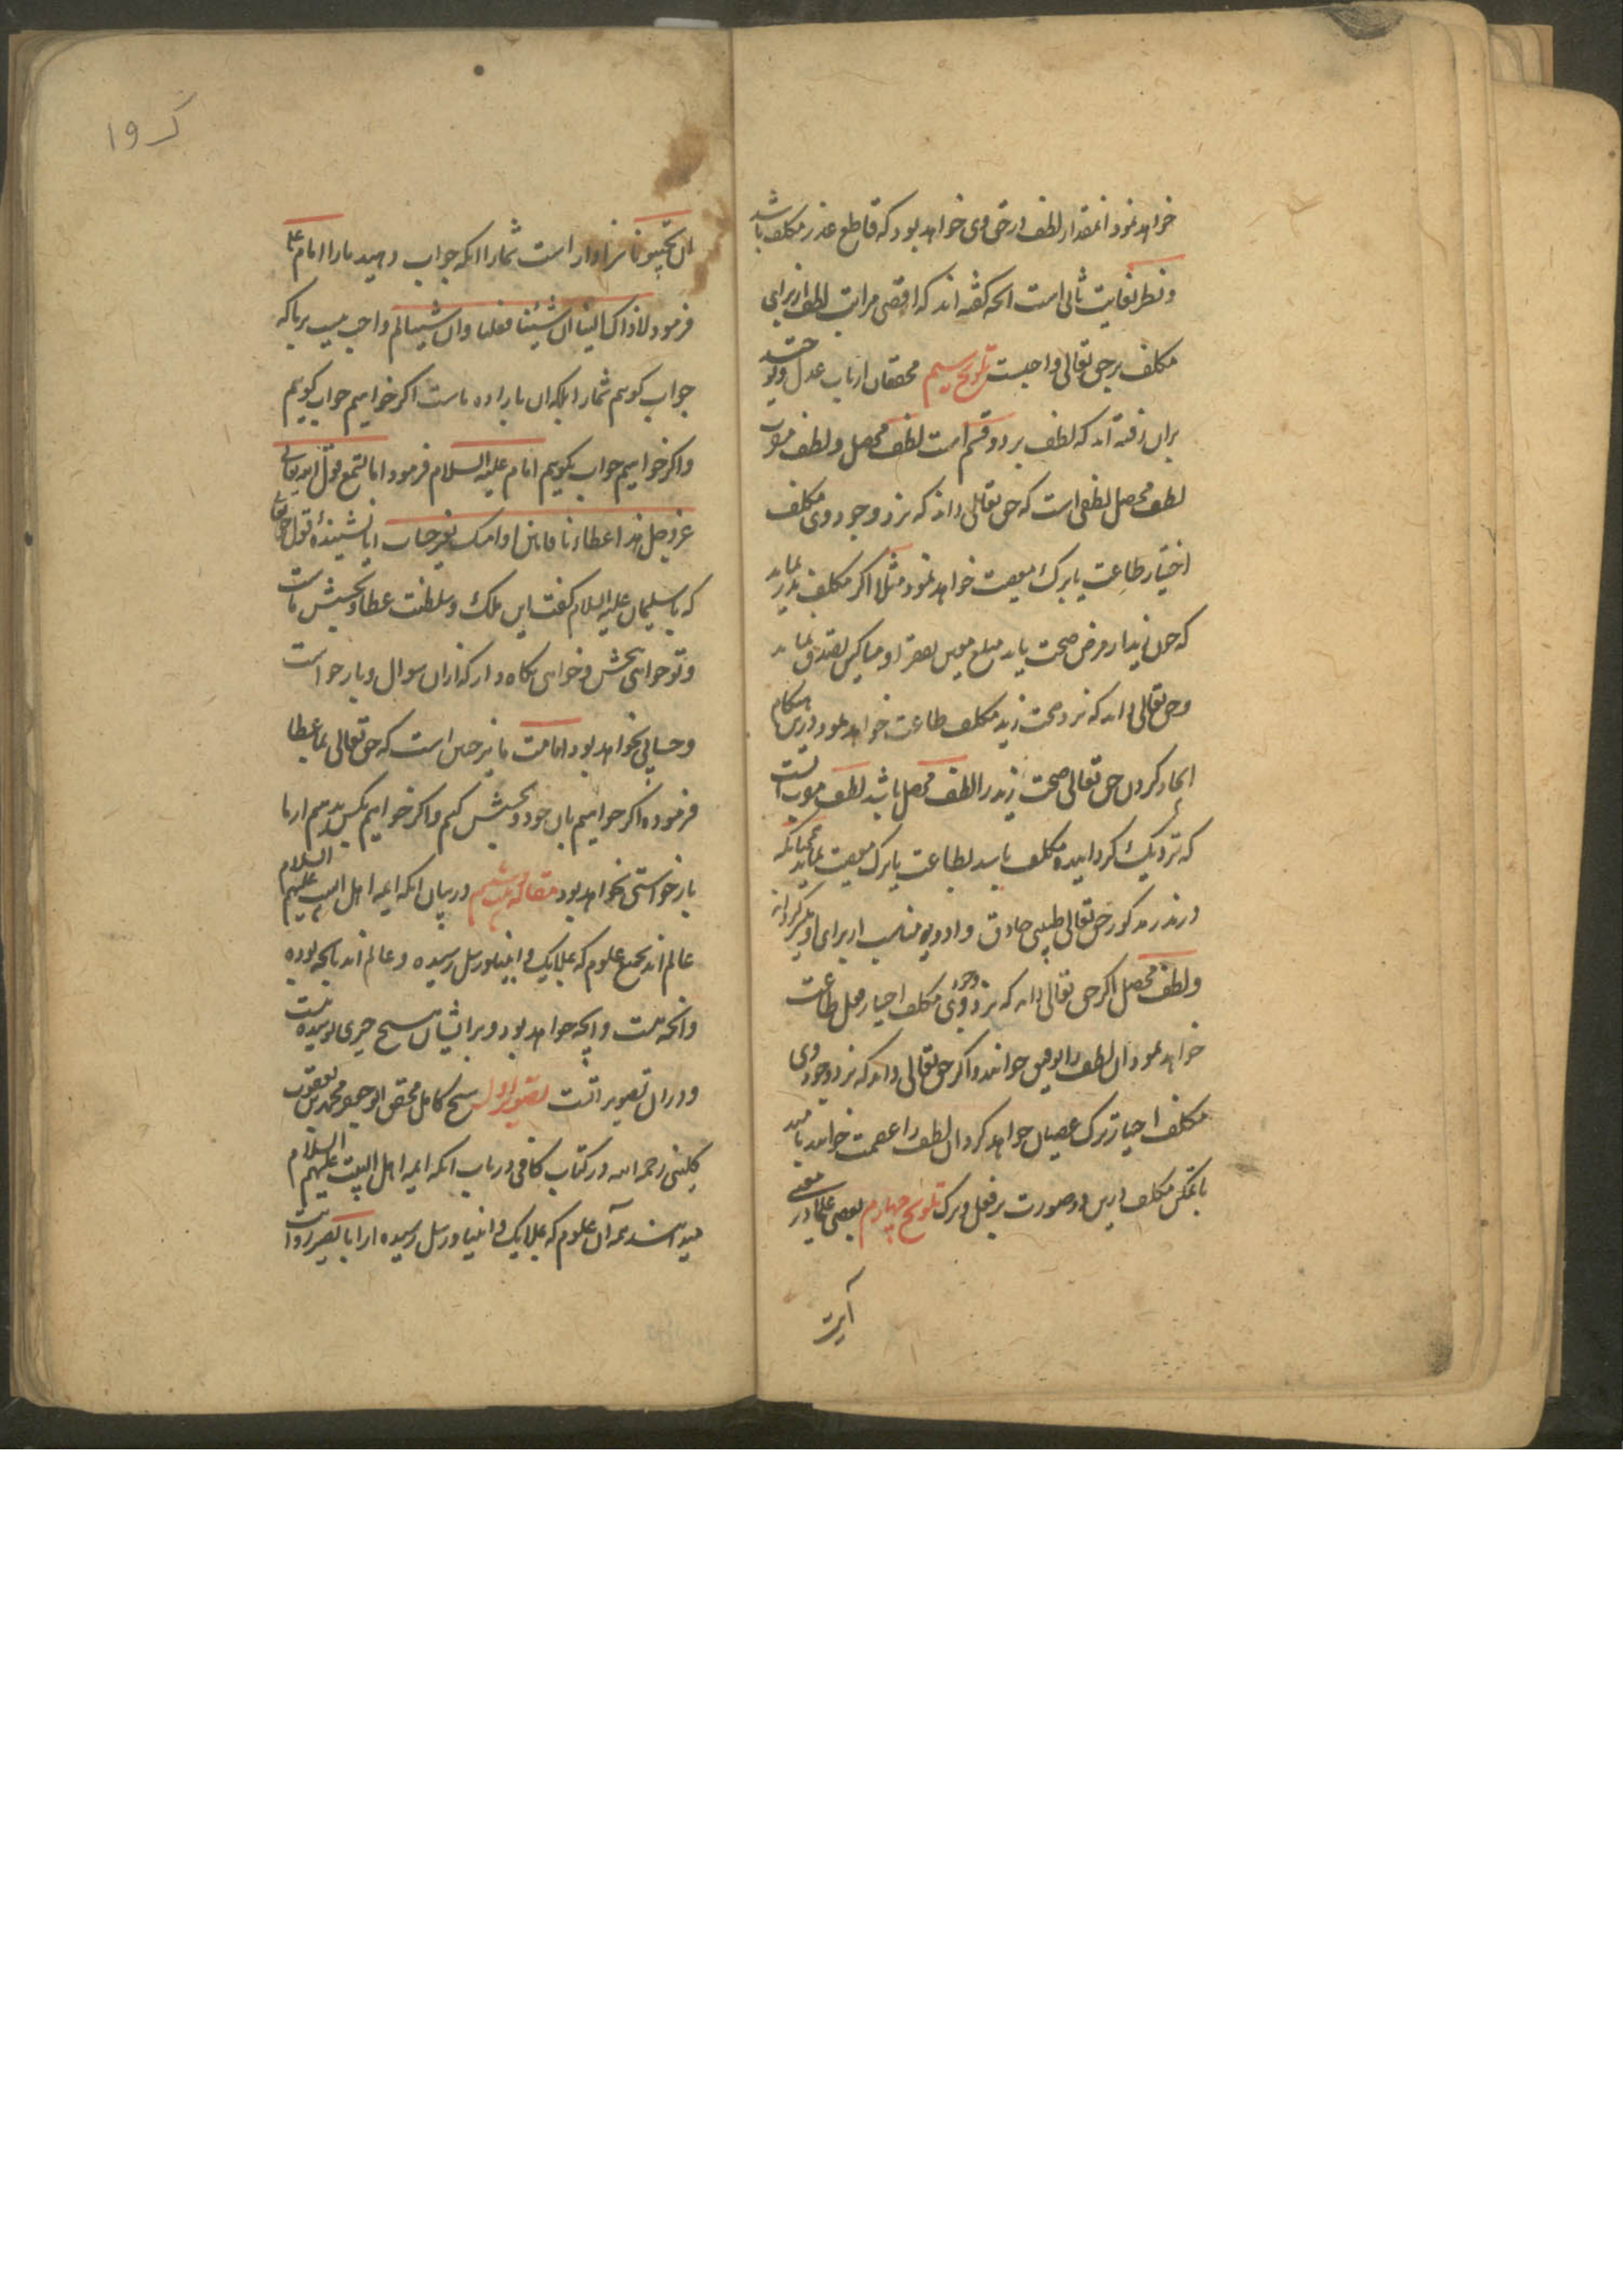 خواهد نمود انمقدار لطف در حق وی خواهد بود که قاطع عذر مکلف باشد
و نظر بغایت ثانی است انچه گفته اند که اقصی مراتب لطف از برای
مکلف بر حق تعالی واجبست تلویح سیم محققان ارباب عدل و توحید
بران رفته اند که لطف بر دو قسم است لطف محصل و لطف مقرب
لطف محصل لطفی است که حق تعالی داند که نزد وجود وی مکلف
اختیار طاعت یا ترک معصیت خواهد نمود مثلا اگر مکلف نذر نماید
که چون زید از مرض صحت یابد مبلغ معین بفقرا و مساکین تصدق نماید
و حق تعالی داند که نزد صحت زید مکلف طاعت خواهد نمود درین هنگام
ایجاد کردن حق تعالی صحت زید را لطف محصل باشد لطف مقرب انست
که نزدیک گرداننده مکلف باشد بطاعت یا ترک معصیت چنانکه
در نذر مذکور حق تعالی طبیبی حاذق و ادویه مناسب از برای او میسر گرداند
و لطف محصل اگر حق تعالی داند که نزد وجود وی مکلف اختیار فعل طاعت
خواهد نمود ان لطف را توفیق خوانند و اگر حق تعالی داند که نزد وجود وی
مکلف اختیار ترک عصیان خواهد کرد ان لطف را عصمت خوانند
با تمکن مکلف درین دو صورت بر فعل و ترک تلویح چهارم بعضی علما در معنی
آیت
کـ ١٩
ان تجیبونا سزاوار است شما را انکه جواب دهید ما را امام ع
فرمود لا ذاک الینا ان شئنا فعلنا وان شئنا لم واجب نیست بر ما که
جواب گوییم شما را بلکه ان باراده ماست اگر خواهیم جواب گوییم
و اگر خواهیم جواب نگوییم امام علیه السلام فرمود اما تسمع قول الله تعالی
عز وجل هذا عطاؤنا فامنن او امسک بغیر حساب ایا نشنیدهٔ قول حق تعالی
که با سلیمان علیه السلام گفت این ملک و سلطنت عطا و بخشش ماست
و تو خواهی بخش و خواهی نگاه دار که از ان سوال و بازخواست
و حسابی نخواهد بود امامت ما نیز چنین است که حق تعالی بما عطا
فرموده اگر خواهیم بان جود و بخشش کنیم و اگر خواهیم بکس ندهیم از ما
بازخواستی نخواهد بود مقاله در بیان انکه ایمه اهل البیت علیهم السلام
عالم اند بجمیع علوم که بملایک و انبیا و رسل رسیده و عالم اند بانچه بوده
و انچه هست و انچه خواهد بود و بر ایشان هیچ چیزی پوشیده نیست
و در ان تصویر است تصویر اول شیخ کامل محقق ابو جعفر محمد بن یعقوب
کلینی رحمه الله در کتاب کافی در باب انکه ایمه اهل البیت علیهم السلام
میدانند همه آن علوم که بملایک و انبیا و رسل رسیده از ابا بصیر روایت